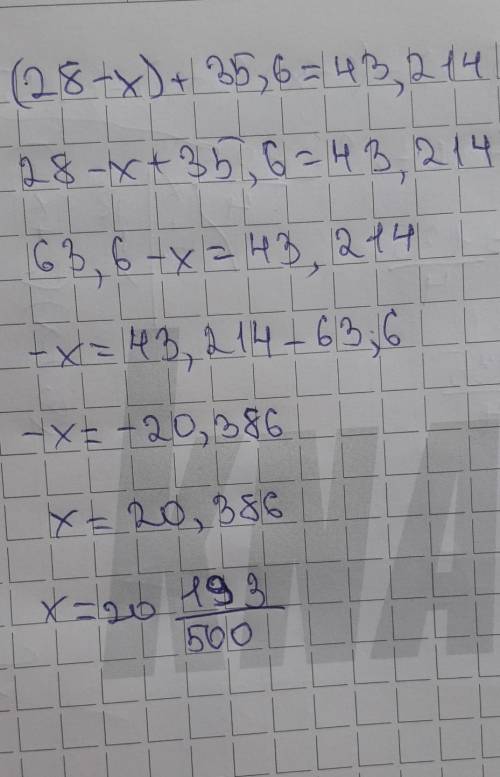 (28-x)+35,6=43,214
28-x+35,6=43,214
63,6-x=43,214
-x=43,214-63,6
-x=-20,386
x=20,386
x=20 193/500
KNA